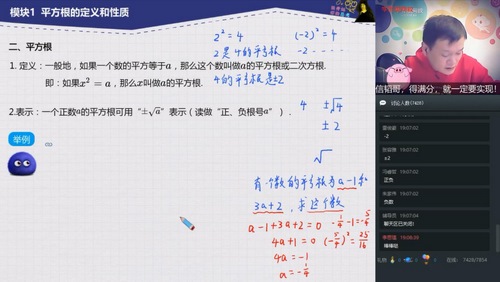 模块1 平方根的定义和性质
二、平方根
1. 定义：一般地，如果一个数的平方等于a，那么这个数叫做a的平方根或二次方根.
即：如果x² = a，那么x叫做a的平方根.
2.表示：一个正数a的平方根可用“±√a”表示（读做“正、负根号a”）.
举例
∞
2² = 4
(-2)² = 4
2是4的平方根
-2 - - - - -
4的平方根是±2
4 ±√4
± 2
√
有一个数的平方根为a-1和
3a+2，求这个数
a-1+3a+2=0
4a+1=0
4a=-1
a=-1/4
-1/4-1=-5/4
(-5/4)²=25/16
信韬哥，得满分，就一定要实现！
讨论人数(7428)
19:07:02
-2
19:07:02
±2
19:07:02
正负
19:07:02
负数
19:07:02
聊天区已关闭！
19:08:39
棒棒哒
礼物
在线：7428/7854